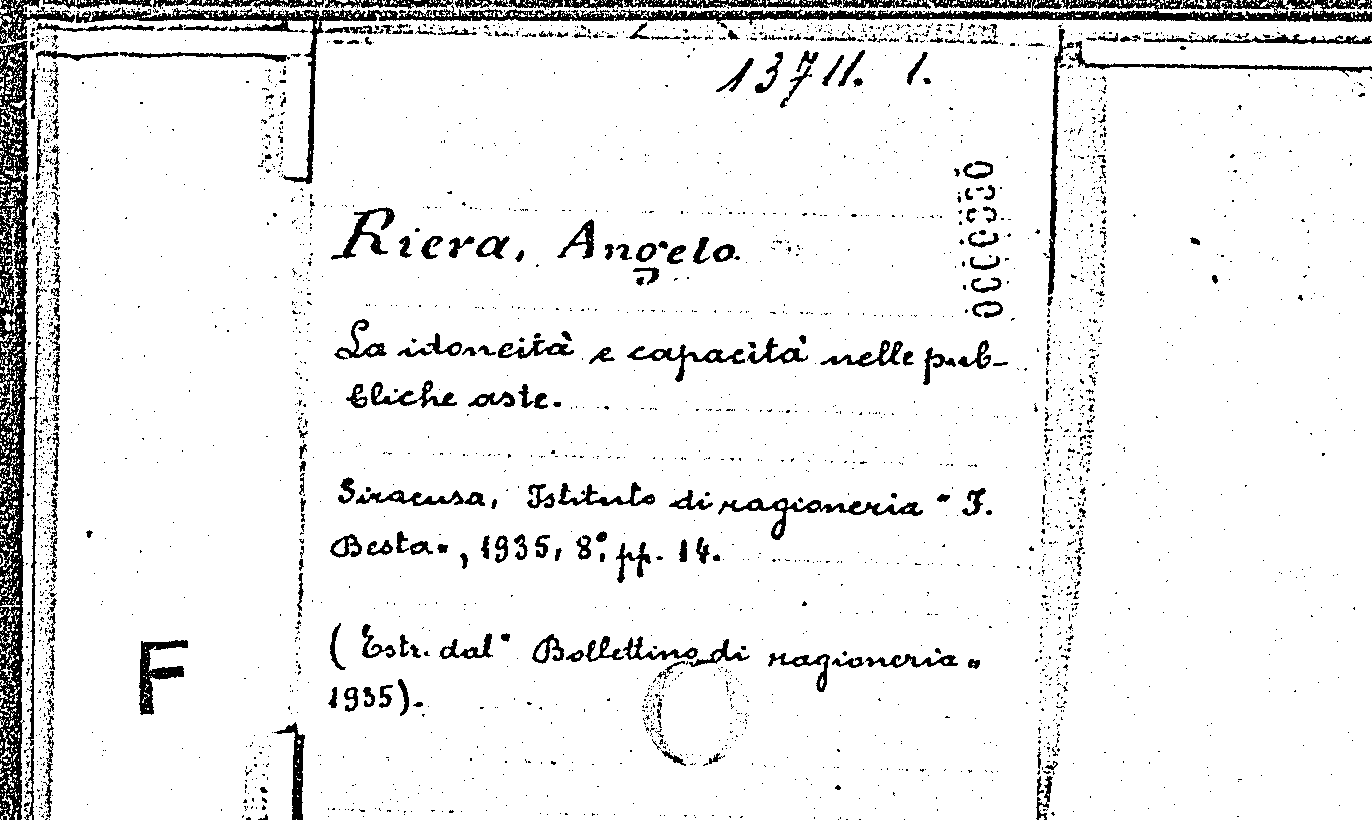 13711. 1.
Riera, Angelo.
La idoneità e capacità nelle pub-
bliche aste.
Siracusa, Istituto di ragioneria " F.
Besta", 1935, 8°, pp. 14.
( Estr. dal " Bollettino di ragioneria "
1935).
F